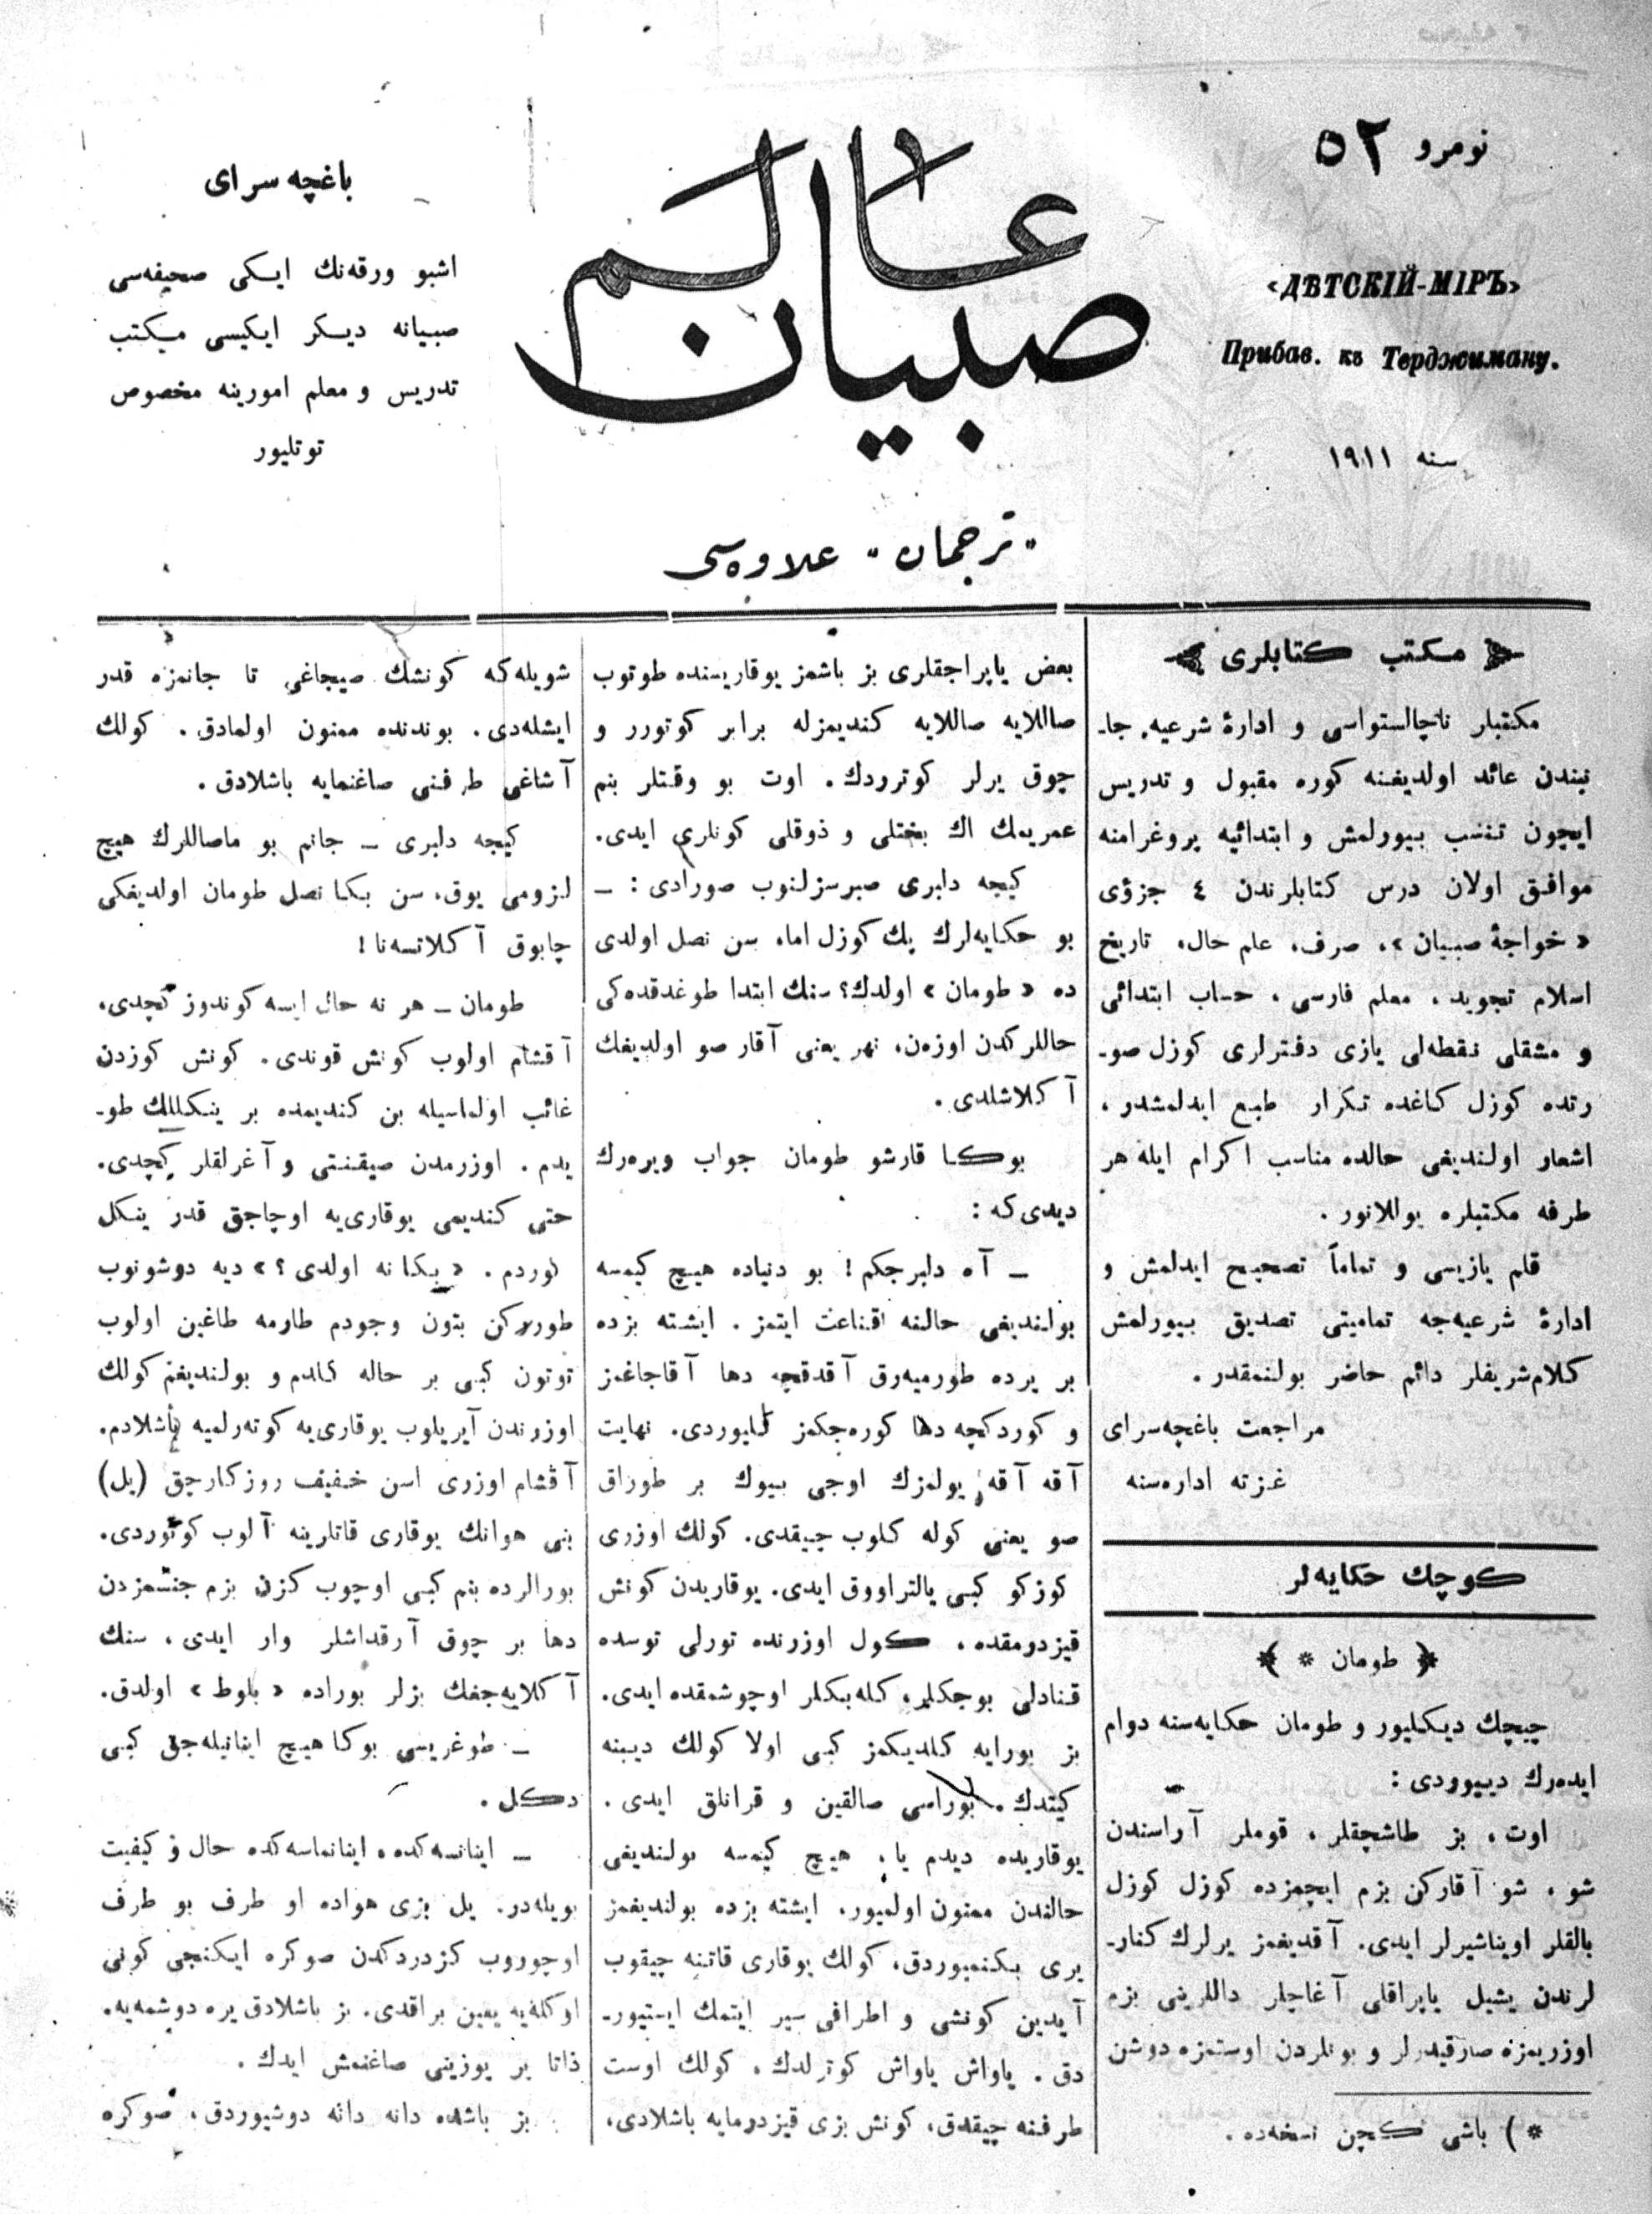 نومرو ٥٢
«ДѢТСКІЙ-МІРЪ»
Прибав. къ Терджиману.
سنه ١٩١١
عالم
صبيان
"ترجمان" علاوه‌سی
باغچه سرای
اشبو ورقه‌نك ایكی صحیفه‌سی
صبیانه دیكر ایكیسی میكتب
تدریس و معلم امورینه مخصوص
توتلیور
مكتب كتابلری
مكتبلر ناچالستواسی و ادارهٔ شرعیه جا-
نبندن عائد اولدیغنه كوره مقبول و تدریس
ایچون تنسب بیورلمش و ابتدائیه پروغرامنه
موافق اولان درس كتابلرندن ٤ جزؤی
«خواجهٔ صبیان»، صرف، علم حال، تاریخ
اسلام تجوید، معلم فارسی، حساب ابتدائی
و مشقلی نقطه‌لی یازی دفترلری كوزل صو-
رتده كوزل كاغده تكرار طبع ایدلمشدر،
اشعار اولندیغی حالده مناسب اكرام ایله هر
طرفه مكتبلره یوللانور.
قلم یازیسی و تماماً تصحیح ایدلمش و
ادارهٔ شرعیه‌جه تمامیتی تصدیق بیورلمش
كلام‌شریفلر دائم حاضر بولنمقدر.
مراجعت باغچه‌سرای
غزته اداره‌سنه
كوچك حكایه‌لر
﴿ طومان * ﴾
چیچك دیكلیور و طومان حكایه‌سنه دوام
ایده‌رك دییوردی:
اوت، بز طاشچقلر، قوملر آراسندن
شو، شو آقاركن بزم ایچمزده كوزل كوزل
بالقلر اویناشیرلر ایدی. آقدیغمز یرلرك كنار-
لرندن یشیل یاپراقلی آغاچلر داللرینی بزم
اوزریمزه صارقیدرلر و بونلردن اوستمزه دوشن
*) باشی كچن نسخه‌ده.
بعض یاپراجقلری بز باشمز یوقاریسنده طوتوب
صاللایه صاللایه كندیمزله برابر كوتورر و
چوق یرلر كوترردك. اوت بو وقتلر بنم
عمریمك اك بختلی و ذوقلی كونلری ایدی.
كیجه دلبری صبرسزلنوب صورادی: —
بو حكایه‌لرك پك كوزل اما، سن نصل اولدی
ده «طومان» اولدك؟ سنك ابتدا طوغدقده‌كی
حاللركدن اوزه‌ن، نهر یعنی آقار صو اولدیغك
آكلاشلدی.
بوكا قارشو طومان جواب ویره‌رك
دیدی‌كه:
— آه دلبرجكم! بو دنیاده هیچ كیمسه
بولندیغی حالنه اقناعت ایتمز. ایشته بزده
بر یرده طورمیه‌رق آقدقچه دها آقاجاغمز
و كوردكچه دها كوره‌جكمز كلیوردی. نهایت
آقه آقه یولمزك اوجی بیوك بر طوراق
صو یعنی كوله كلوب چیقدی. كولك اوزری
كوزكو كبی یالتراووق ایدی. یوقاریدن كونش
قیزدومقده، كول اوزرنده تورلی توسده
قنادلی بوجكلر، كله‌بكلر اوچوشمقده ایدی.
بز بورایه كلدیكمز كبی اولا كولك دیبنه
كیتدك. بوراسی صالقین و قرانلق ایدی.
یوقاریده دیدم یا، هیچ كیمسه بولندیغی
حالندن ممنون اولمیور. ایشته بزده بولندیغمز
یری بكنمیوردق، كولك یوقاری قاتنه چیقوب
آیدین كونشی و اطرافی سیر ایتمك ایستیور-
دق. یاواش یاواش كوترلدك، كولك اوست
طرفنه چیقدق، كونش بزی قیزدرمایه باشلادی،
شویله‌كه كونشك صیجاغی تا جانمزه قدر
ایشله‌دی. بوندنده ممنون اولمادق. كولك
آشاغی طرفنی صاغنمایه باشلادق.
كیجه دلبری — جانم بو ماصاللرك هیچ
لزومی یوق، سن بكا نصل طومان اولدیغكی
چابوق آكلاتسه‌نا!
طومان — هر نه حال ایسه كوندوز كچدی،
آقشام اولوب كونش قوندی. كونش كوزدن
غائب اولماسیله بن كندیمده بر ینكللك طو-
یدم. اوزرمدن صیقنتی و آغرلقلر كچدی.
حتی كندیمی یوقاری‌یه اوچاجق قدر ینكل
كوردم. «بكا نه اولدی؟» دیه دوشونوب
طوركن بتون وجودم طارمه طاغین اولوب
توتون كبی بر حاله كلدم و بولندیغم كولك
اوزرندن آیریلوب یوقاری‌یه كوته‌رلمیه باشلادم.
آقشام اوزری اسن خفیف روزكارجق (یل)
بنی هوانك یوقاری قاتلرینه آلوب كوتوردی.
بورالرده بنم كبی اوچوب كزن بزم جنسمزدن
دها بر چوق آرقداشلر وار ایدی، سنك
آكلایه‌جغك بزلر بوراده «بلوط» اولدق.
— طوغریسی بوكا هیچ اینانیله‌جق كبی
دكل.
— اینانسه‌كده، اینانماسه‌كده حال و كیفیت
بویله‌در. یل بزی هواده او طرف بو طرف
اوچوروب كزدردكدن صوكره ایكنجی كونی
اوكله‌یه یقین براقدی. بز باشلادق یره دوشمه‌یه.
ذاتا یر یوزینی صاغنمش ایدك.
بز باشده دانه دانه دوشیوردق، صوكره